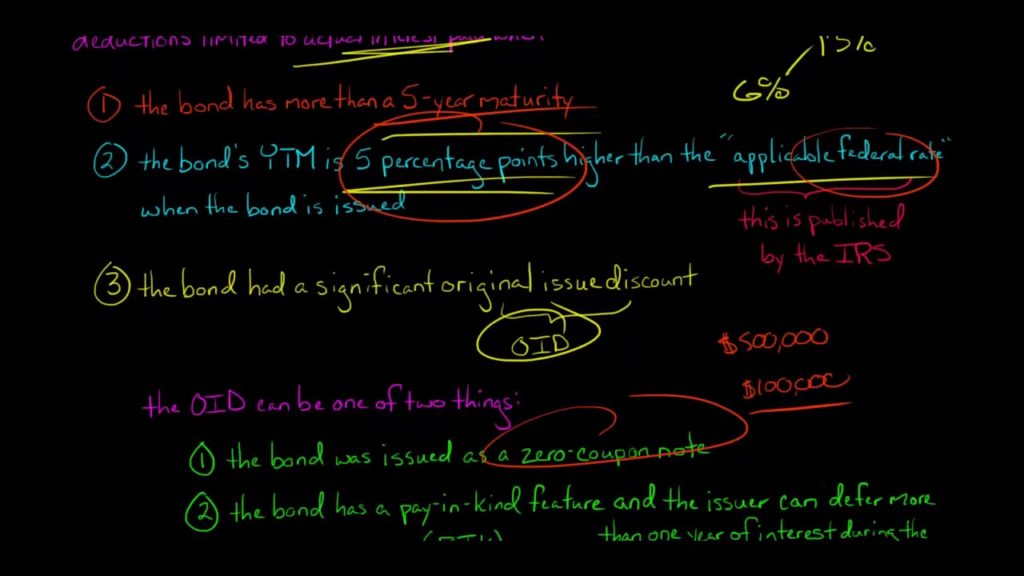 deductions limited to actual interest paid when
13%
6%
① the bond has more than a 5-year maturity
② the bond's YTM is 5 percentage points higher than the "applicable federal rate"
when the bond is issued
this is published
by the IRS
③ the bond had a significant original issue discount
OID
$500,000
$100,000
the OID can be one of two things:
① the bond was issued as a zero-coupon note
② the bond has a pay-in-kind feature and the issuer can defer more
(PIK) than one year of interest during the